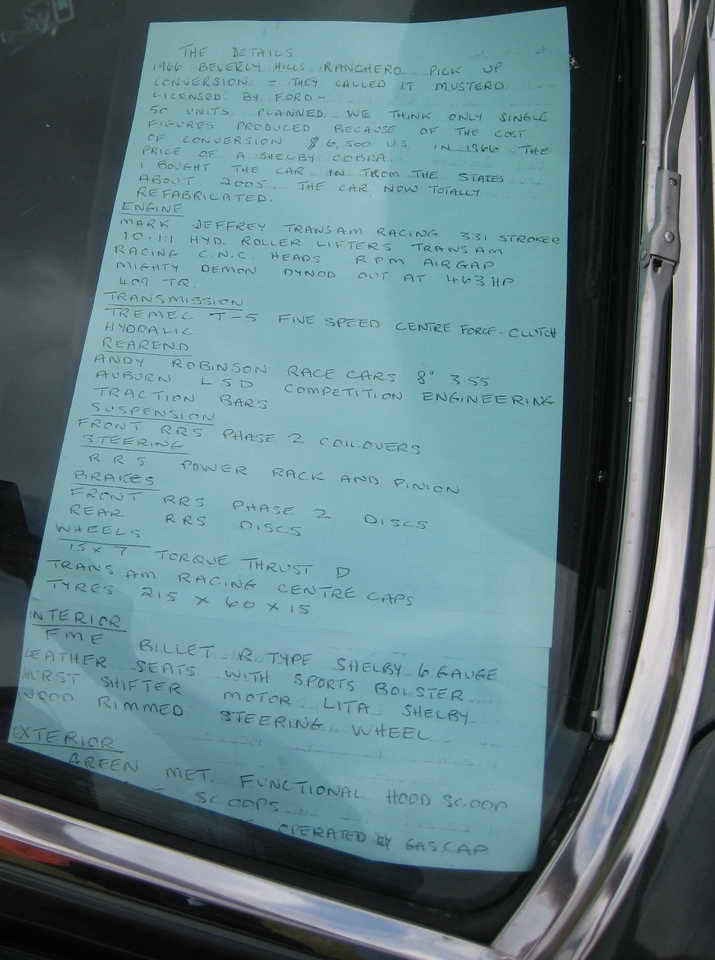 THE DETAILS
1966 BEVERLY HILLS RANCHERO PICK UP
CONVERSION = THEY CALLED IT MUSTERO
LICENSED BY FORD -
50 UNITS PLANNED WE THINK ONLY SINGLE
FIGURES PRODUCED BECAUSE OF THE COST
OF CONVERSION $6,500 U.S. IN 1966 THE
PRICE OF A SHELBY COBRA.
I BOUGHT THE CAR IN FROM THE STATES
ABOUT 2005 THE CAR NOW TOTALLY
REFABRILATED.
ENGINE
MARK JEFFREY TRANS AM RACING 331 STROKER
10.1:1 HYD. ROLLER LIFTERS TRANS AM
RACING C.N.C. HEADS RPM AIRGAP
MIGHTY DEMON DYNOD OUT AT 463 HP
409 TR.
TRANSMISSION
TREMEC T-5 FIVE SPEED CENTRE FORCE - CLUTCH
HYDRALIC
REAREND
ANDY ROBINSON RACE CARS 8" 355
AUBURN LSD COMPETITION ENGINEERING
TRACTION BARS
SUSPENSION
FRONT RRS PHASE 2 COILOVERS
STEERING
RRS POWER RACK AND PINION
BRAKES
FRONT RRS PHASE 2 DISCS
REAR RRS DISCS
WHEELS
15 x 7 TORQUE THRUST D
TRANS AM RACING CENTRE CAPS
TYRES 215 x 60 x 15
INTERIOR
FME BILLET R TYPE SHELBY 6 GAUGE
LEATHER SEATS WITH SPORTS BOLSTER
HURST SHIFTER MOTOR LITA SHELBY
WOOD RIMMED STEERING WHEEL
EXTERIOR
GREEN MET. FUNCTIONAL HOOD SCOOP
SCOOPS
OPERATED BY GAS CAP